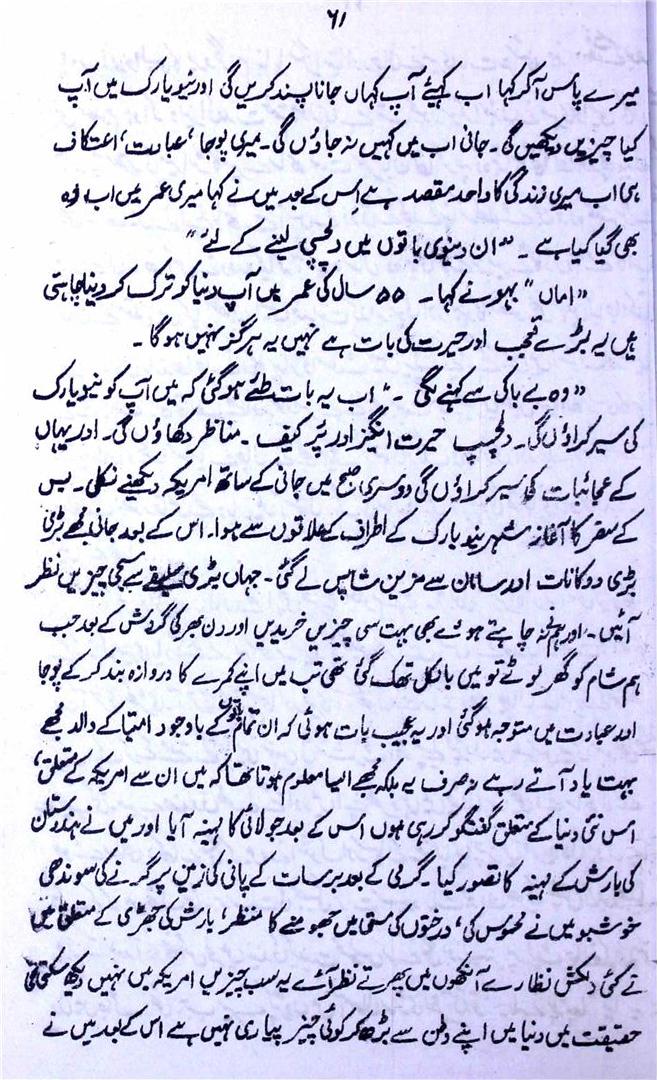 ۶۱
میرے پاس آکر کہا اب کہیئے آپ کہاں جانا پسند کریں گی اور نیویارک میں آپ
کیا چیزیں دیکھیں گی۔ جانی اب میں کہیں نہ جاؤں گی۔ میری پوجا، عبادت، اعتکاف
ہی اب میری زندگی کا واحد مقصد ہے اِس کے بعد میں نے کہا میری عمر میں اب رہ
بھی گیا کیا ہے ۔ "ان دنیوی باتوں میں دلچسپی لینے کے لئے"
"اماں" بہو نے کہا۔ ۵۵ سال کی عمر میں آپ دنیا کو ترک کر دینا چاہتی
ہیں یہ بڑے تعجب اور حیرت کی بات ہے نہیں یہ ہرگز نہیں ہو گا ۔
"وہ بے باکی سے کہنے لگی ۔" اب یہ بات طئے ہو گئی کہ میں آپ کو نیویارک
کی سیر کراؤں گی۔ دلچسپ حیرت انگیز اور پر کیف ۔ مناظر دکھاؤں گی۔ اور یہاں
کے عجائبات کی سیر کراؤں گی دوسری صبح میں جانی کے ساتھ امریکہ دیکھنے نکلی۔ بس
کے سفر کا آغاز شہر نیویارک کے اطراف کے علاقوں سے ہوا۔ اس کے بعد جانی مجھے بڑی
بڑی دوکانات اور سامان سے مزین شاپس لے گئی ۔ جہاں بڑی سلیقے سے سجی چیزیں نظر
آئیں ۔ اور ہم نہ چاہتے ہوئے بھی بہت سی چیزیں خریدیں اور دن بھر کی گردش کے بعد جب
ہم شام کو گھر لوٹے تو میں بالکل تھک گئی تھی تب میں اپنے کمرے کا دروازہ بند کر کے پوجا
اور عبادت میں متوجہ ہو گئی اور یہ عجیب بات ہوئی کہ ان تمام کے باوجود امتیا کے والد مجھے
بہت یاد آتے رہے نہ صرف یہ بلکہ مجھے ایسا معلوم ہوتا تھا کہ میں ان سے امریکہ کے متعلق،
اس نئی دنیا کے متعلق گفتگو کر رہی ہوں اس کے بعد جولائی کا مہینہ آیا اور میں نے ہندوستان
کی بارش کے مہینہ کا تصور کیا۔ گرمی کے بعد برسات کے پانی کی زمین پر گرنے کی سوندھی
خوشبو میں نے محسوس کی، درختوں کی مستی میں جھومنے کا منظر، بارش کی جھڑی کے متعلق میں
نے کئی دلکش نظارے آنکھوں میں پھرتے نظر آئے یہ سب چیزیں امریکہ میں نہیں دیکھ سکتی تھی
حقیقت میں دنیا میں اپنے وطن سے بڑھ کر کوئی چیز پیاری نہیں ہے اس کے بعد میں نے